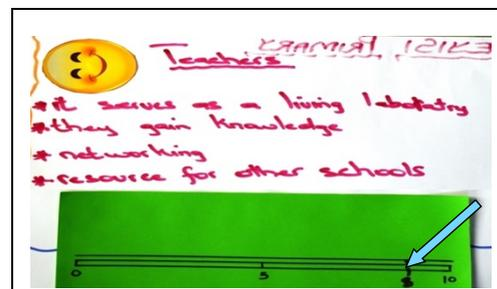 EKISI PRIMARY
Teachers
* it serves as a living labofatry
* they gain knowledge
* networking
* resource for other schools
0 5 8 10